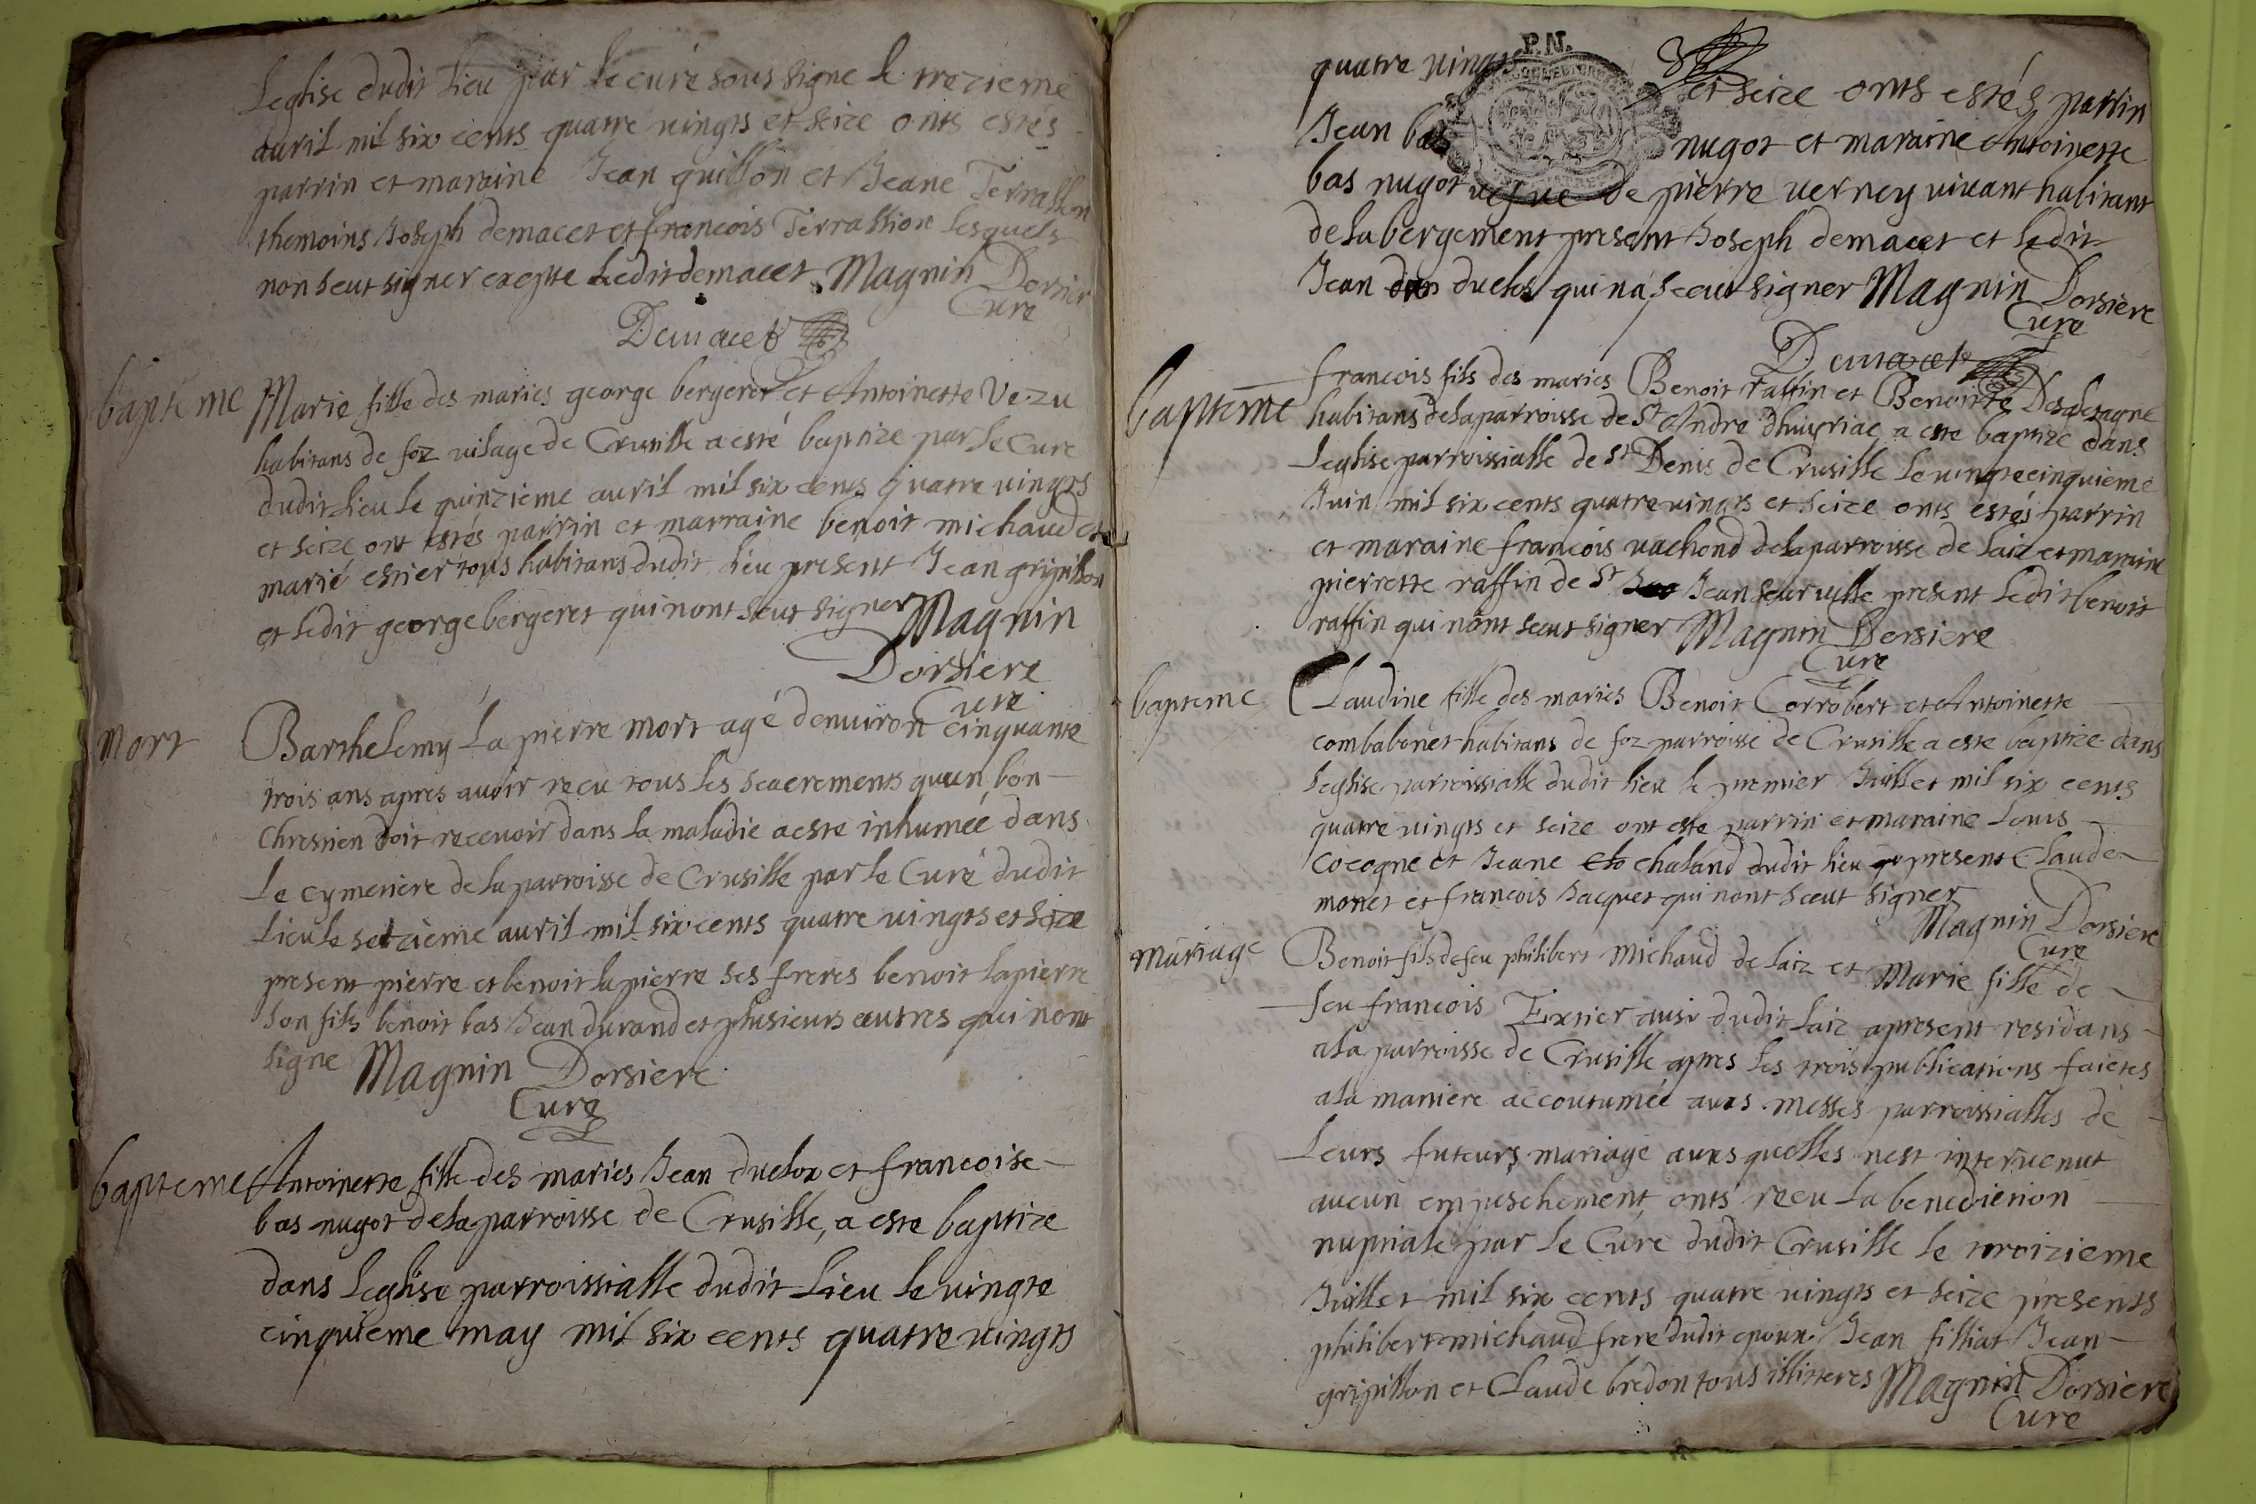 Leglise dudit Lieu par le curé sous signe le trezieme
auril mil six cents quatre vingts et seize onts estés
parrin et maraine Jean guillon et Jeane Terrassion
themoins Joseph demacet et francois Terrassion lesquels
non seut signer excepte Ledit demacet Magnin Dorsiere
Cure
Demacet
bapteme Marie fille des maries george bergeret et Antoinette Vezu
habitans de foz vilage de Crusille a esté baptize par le Cure
dudit lieu le quinzieme auril mil six cents quatre vingts
et seize ont estés parrin et marraine benoit michaud et
marié estier tous habitans dudit lieu present Jean gripillon
et ledit george bergeret qui nont sceut signer Magnin
Dorsiere
Cure
mort Barthelemy La pierre mort agé denuiron cinquante
trois ans apres auoir receu tous les seacrements quun bon
Chrestien doit receuoir dans la maladie a este inhumée dans
Le cymetiere de la parroisse de Crusille par le Curé dudit
Lieu le setzieme auril mil six cents quatre vingts et seize
present pierre et benoit lapierre ses freres benoit lapierre
son fils benoit bas Jean durand et plusieurs autres qui nont
signe Magnin Dorsiere
Cure
bapteme Antoinette fille des maries Jean duclox et francoise
bas nugot de la parroisse de Crusille, a este baptize
dans Leglise parroissialle dudit Lieu le vingte
cinquieme may mil six cents quatre vingts
P.N.
quatre vingts et seize onts estés parrin
Jean bas nugot et maraine Antoinette
bas nugot vefve de pierre verney viuant habitant
de labergement present Joseph demacet et ledit
Jean duclos qui na sceut signer Magnin Dorsiere
Cure
Demacet
bapteme francois fils des maries Benoit raffin et Benoitte Desplesagne
habitans de la parroisse de St Andre dhuiriac a este baptize dans
Leglise parroissialle de St Denis de Crusille le vingtecinquieme
Juin mil six cents quatre vingts et seize onts estés parrin
et maraine francois vachond de la parroisse de laiz et maraine
pierrette raffin de St Jean seur uesle present ledit benoit
raffin qui nont sceut signer Magnin Dorsiere
Cure
bapteme Claudine fille des maries Benoit Corrobert et Antoinette
combabonet habitans de foz parroisse de Crusille a este baptize dans
leglise parroissialle dudit lieu le premier Juillet mil six cents
quatre vingts et seize ont este parrin et maraine Louis
cocogne et Jeane chaland dudit lieu present Claude
monet et francois Jacquet qui nont sceut signer
Magnin Dorsiere
Cure
mariage Benoit fils de feu philibert Michaud de laiz et Marie fille de
feu francois Extier ausi dudit laiz apresent residans
ala parroisse de Crusille apres les trois publications faictes
ala maniere accoutumée auxs messes parroissialles de
Leurs futeurs mariage auxs quelles nest interuenut
aucun empeschement onts receu la benediction
nuptiale par le Cure dudit Crusille le troizieme
Juillet mil six cents quatre vingts et seize presents
philibert michaud frere dudit epoux Jean filliat Jean
gripillon et Claude bredon tous illitteres Magnin Dorsiere
Cure